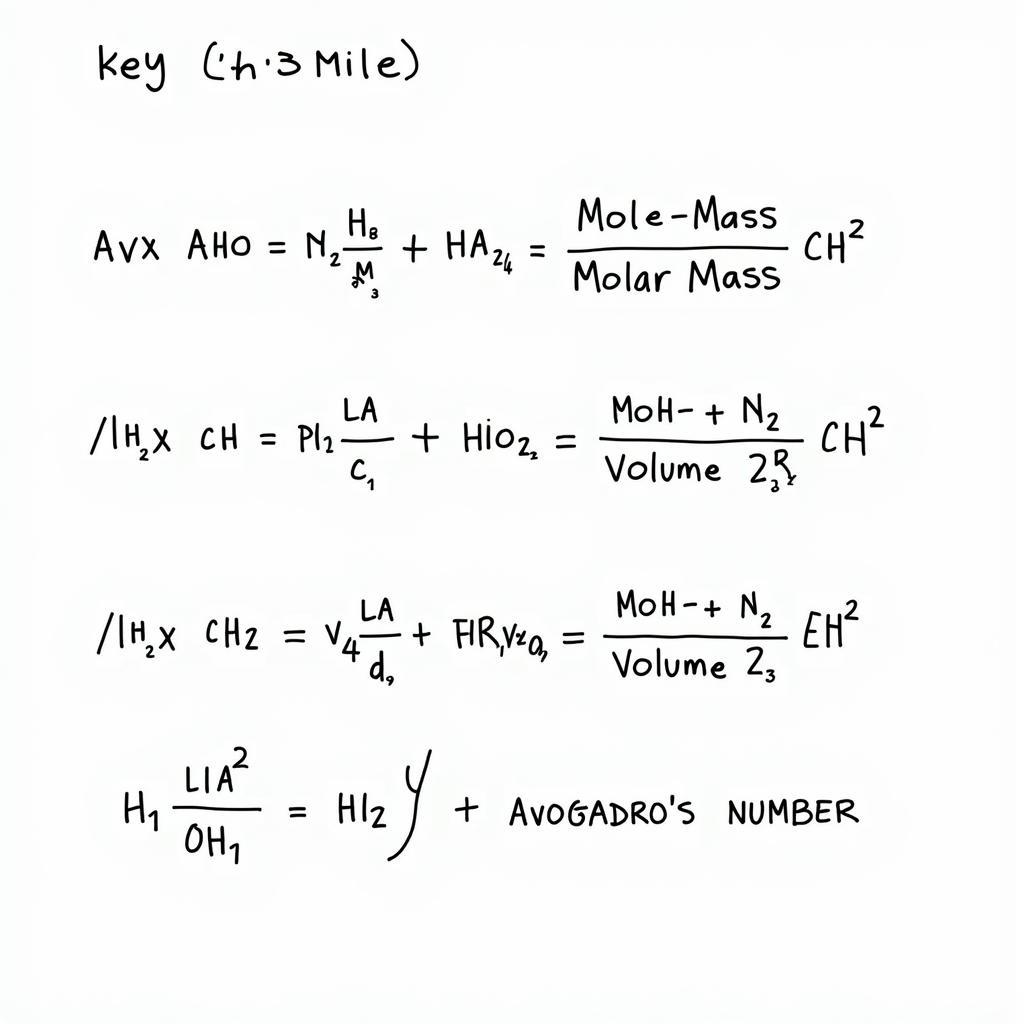 key ('h·3 Mile)
Avx AHO = N₂ H₈/M₃ + HA₂₄ = Mole-Mass/Molar Mass CH²
/IH₂x CH = PI₂ LA/C₁ + HiO₂₂ = MoH-+ N₂/Volume 2₃ CH²
/IH₂x CH2 = V₄ LA/d₉ + = MoH-+ N₂/Volume 2₃ EH²
H₁ LIA²/OH₁ = HI₂ y + AVOGADRO'S NUMBER